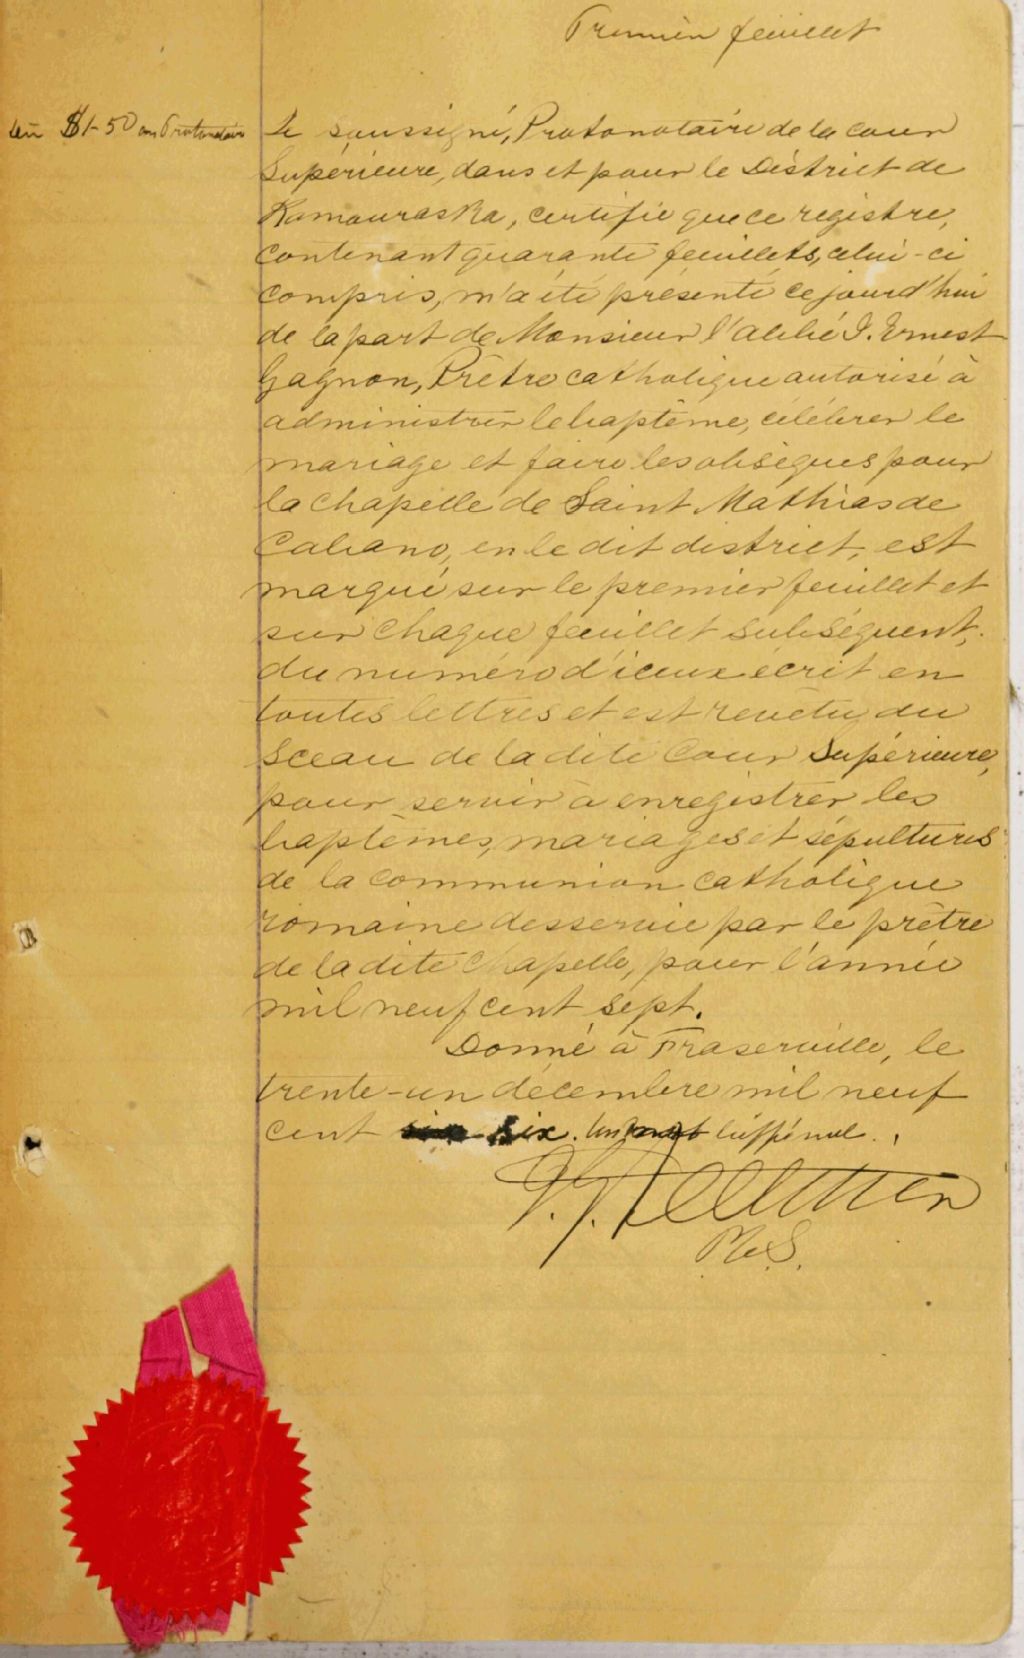 Premier feuillet
$1-50 au Protonotaire
Le soussigné, Protonotaire de la Cour
Supérieure, dans et pour le District de
Kamouraska, certifie que ce registre,
contenant quarante feuillets, celui-ci
compris, m'a été présenté ce jourd'hui
de la part de Monsieur l'abbé J. Ernest
Gagnon, Prêtre catholique autorisé à
administrer le baptême, célébrer le
mariage et faire les obsèques pour
la chapelle de Saint Mathias de
Cabano, en le dit district, est
marqué sur le premier feuillet et
sur chaque feuillet subséquent,
du numéro d'iceux écrit en
toutes lettres et est revêtu du
Sceau de la dite Cour Supérieure,
pour servir à enregistrer les
baptêmes, mariages et sépultures
de la communion catholique
romaine desservie par le prêtre
de la dite Chapelle, pour l'année
mil neuf cent sept.
Donné à Fraserville, le
trente-un décembre mil neuf
cent six. Un mot biffé nul.
P.C.S.